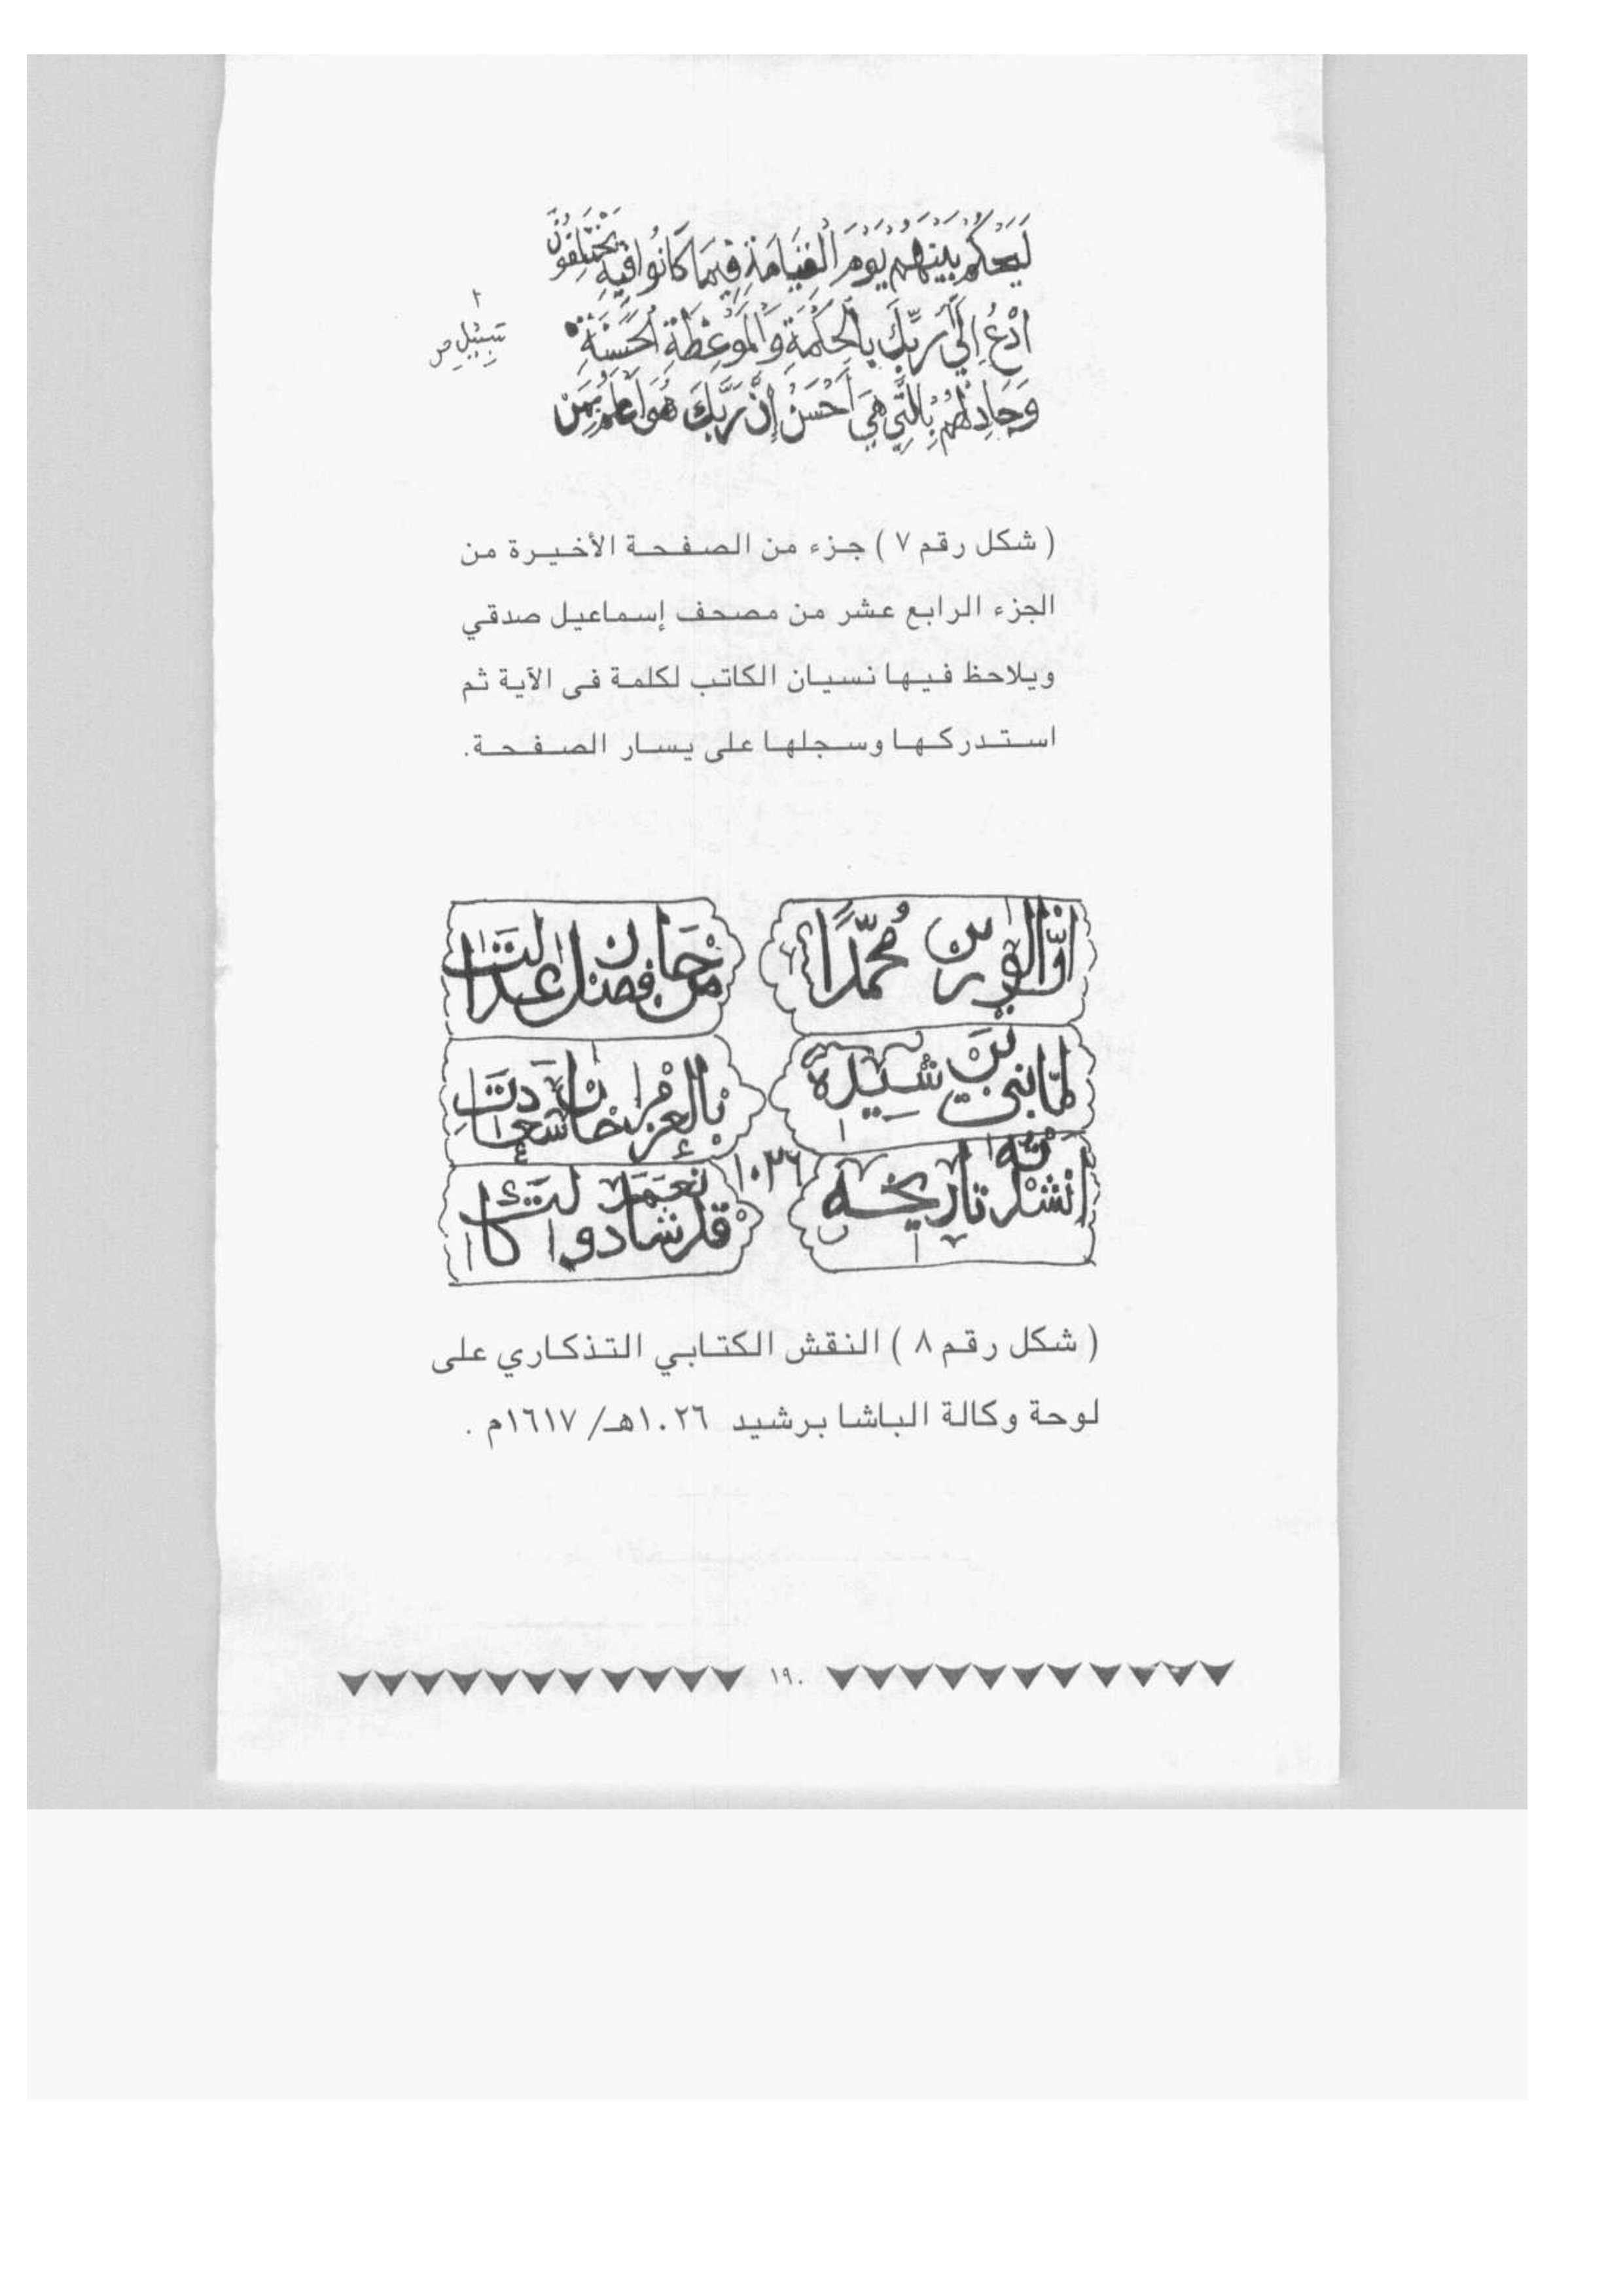 لَيَحْكُمُ بَيْنَهُمْ يَوْمَ الْقِيَامَةِ فِيمَا كَانُوا فِيهِ يَخْتَلِفُونَ
ادْعُ إِلَى رَبِّكَ بِالْحِكْمَةِ وَالْمَوْعِظَةِ الْحَسَنَةِ
سَبِيلِ ص
وَجَادِلْهُمْ بِالَّتِي هِيَ أَحْسَنُ إِنَّ رَبَّكَ هُوَ أَعْلَمُ بِمَنْ
( شكل رقم ٧ ) جزء من الصفحة الأخيرة من
الجزء الرابع عشر من مصحف إسماعيل صدقي
ويلاحظ فيها نسيان الكاتب لكلمة فى الآية ثم
استدركها وسجلها على يسار الصفحة.
الوزير مُحمّدًا
من حاز فضل عدالت
لمّا بنى
بالعز
١٠٢٦
تاريخه
قد
( شكل رقم ٨ ) النقش الكتابي التذكاري على
لوحة وكالة الباشا برشيد ١٠٢٦هـ/ ١٦١٧م .
١٩٠